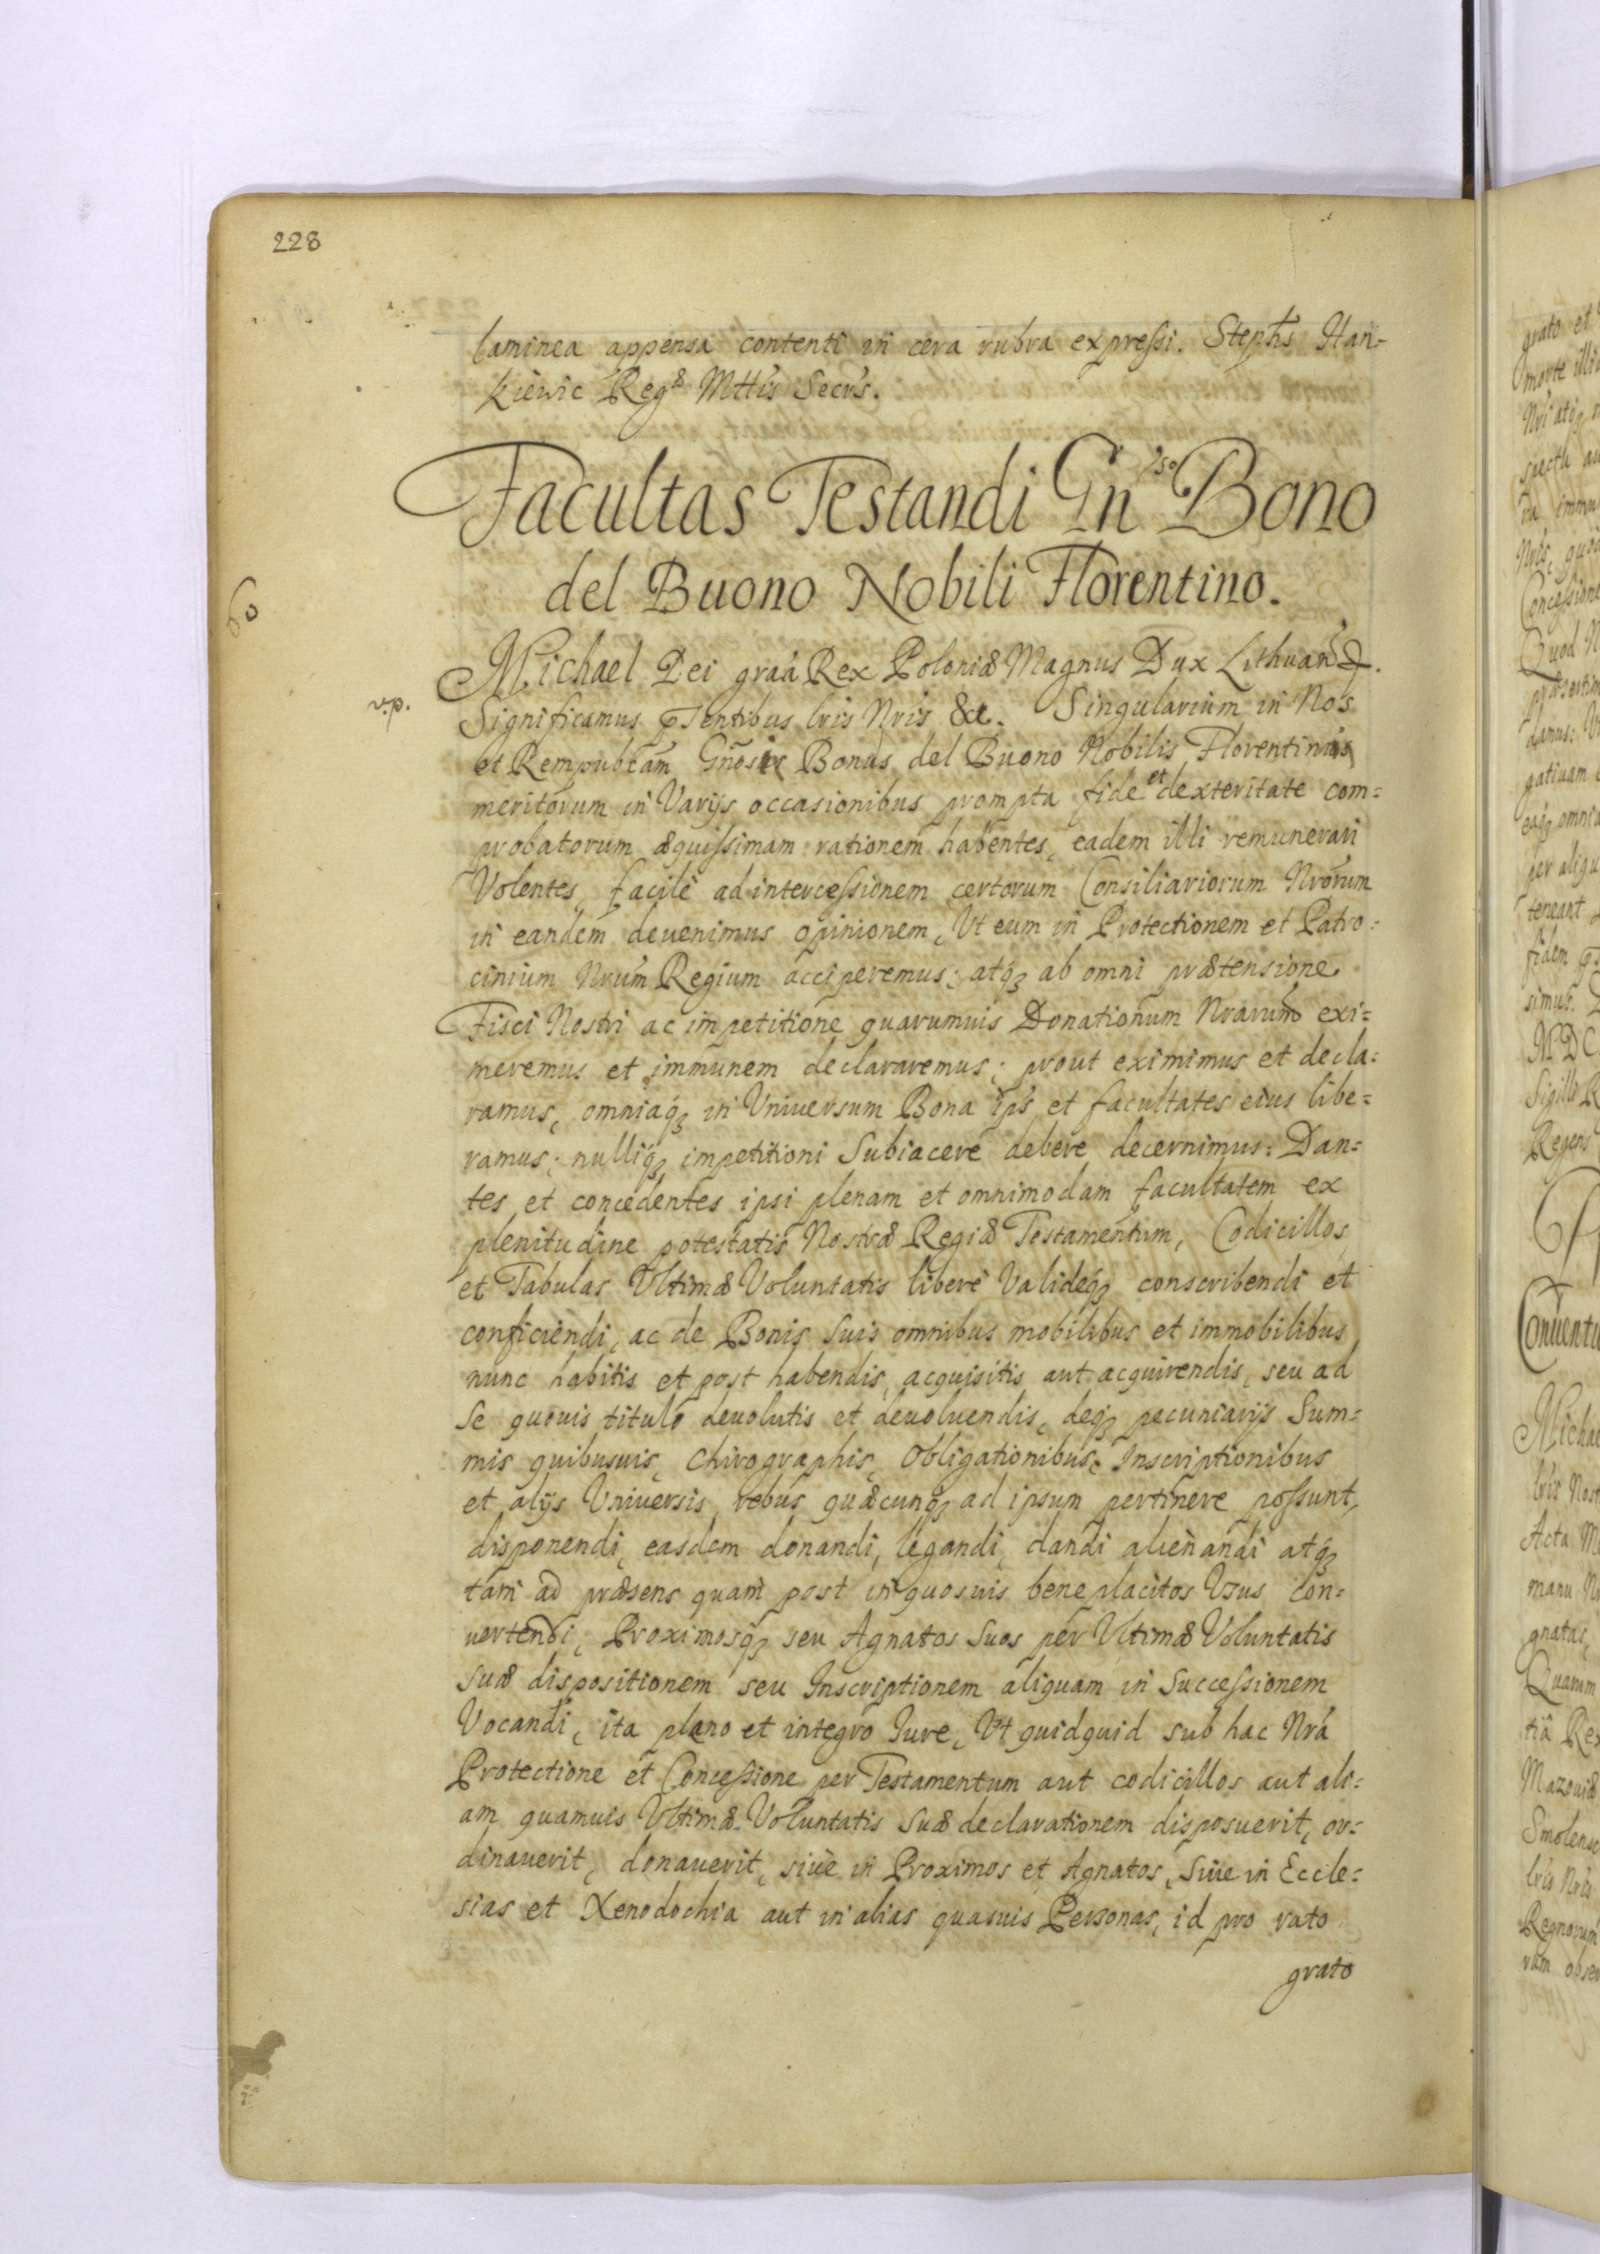 228
laminea appensa contenti in cera rubra expreſsi. Stephs Han=
kiewic Regæ Mttis Secrs.
Facultas Testandi Gn°so Bono
del Buono Nobili Florentino.
60
Michael Dei graa Rex Poloniæ Magnus Dux Lithuan &.
v.p.
Significamus pntibus lris Nris &c. Singularium in Nos
et Rempubcam Gnosi Bonus del Buono Nobilis Florentinus
meritorum in Varijs occasionibus prompta fide et dexteritate com=
probatorum æquiſsimam rationem habentes, eadem illi remunerari
Volentes, facile ad interceſsionem certorum Consiliariorum Nrorum
in eandem deuenimus opinionem, Vt eum in Protectionem et Patro=
cinium Nrum Regium acciperemus; atq́ꝫ ab omni prætensione
Fisci Nostri ac impetitione quarumuis Donationum Nrarum exi=
meremus et immunem declararemus; prout eximimus et decla=
ramus, omniaq́ꝫ in Vniuersum Bona ips et facultates eius libe=
ramus; nulliq́ꝫ impetitioni Subiacere debere decernimus: Dan=
tes et concedentes ipsi plenam et omnimodam facultatem ex
plenitudine potestatis Nostræ Regiæ Testamentum, Codicillos,
et Tabulas Vltimæ Voluntatis libere Valideq́ꝫ conscribendi et
conficiendi, ac de Bonis Suis omnibus mobilibus et immobilibus
nunc habitis et post habendis, acquisitis aut acquirendis, seu ad
Se quouis titulo deuolutis et deuoluendis, deq́ꝫ pecuniarijs Sum=
mis quibusuis, Chirographis, Obligationibus, Inscriptionibus
et alijs Vniuersis rebus quæcunq́ꝫ ad ipsum pertinere poſsunt,
disponendi, easdem donandi, legandi, dandi alienandi atq́ꝫ
tam ad præsens quam post in quosuis beneplacitos Vsus con=
uertendi, Proximosq́ꝫ seu Agnatos Suos per Vltimæ Voluntatis
suæ dispositionem seu Inscriptionem aliquam in Succeſsionem
Vocandi, ita plano et integro Iure, Vt quidquid sub hac Nra
Protectione et Conceſsione per Testamentum aut codicillos aut ali=
am quamuis Vltimæ Voluntatis Suæ declarationem disposuerit, or=
dinauerit, donauerit, siue in Proximos et Agnatos, Siue in Eccle=
sias et Xenodochia aut in alias quasuis Personas, id pro rato
grato